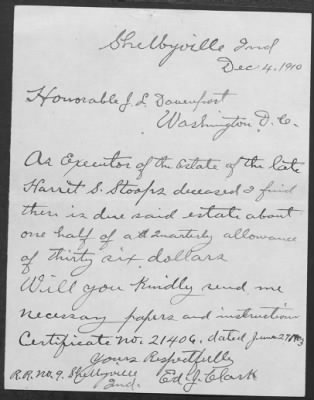 Shelbyville Ind
Dec 4. 1910
Honorable J. L Davenport
Washington D. C.
As Executor of the Estate of the late
Harriet S. Stoops deceased I find
there is due said estate about
one half of a Quarterly allowance
of thirty six dollars
Will you Kindly send me
necessary papers and instructions
Certificate no. 21406. dated June 27
Yours Respectfully
R.R. No. 9. Shelbyville Ed. J. Clark
Ind.